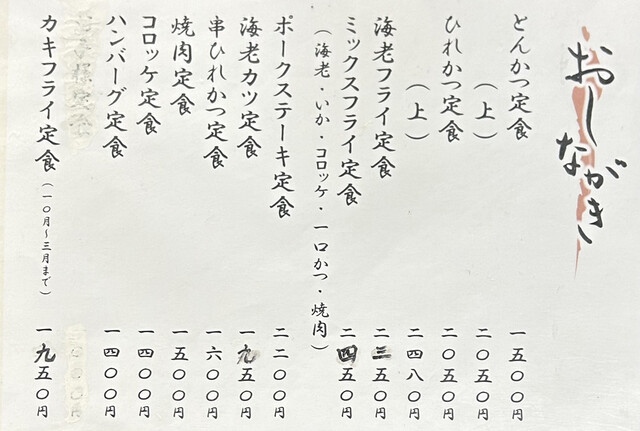 おしながき
とんかつ定食 一五〇〇円
（上） 二〇五〇円
ひれかつ定食 二〇五〇円
（上） 二四八〇円
海老フライ定食 二三五〇円
ミックスフライ定食 二四五〇円
（海老 いか・コロッケ・一口かつ・焼肉）
ポークステーキ定食 二二〇〇円
海老カツ定食 一九五〇円
串ひれかつ定食 一六〇〇円
焼肉定食 一五〇〇円
コロッケ定食 一四〇〇円
ハンバーグ定食 一四〇〇円
定食 〇〇円
カキフライ定食（一〇月〜三月まで） 一九五〇円